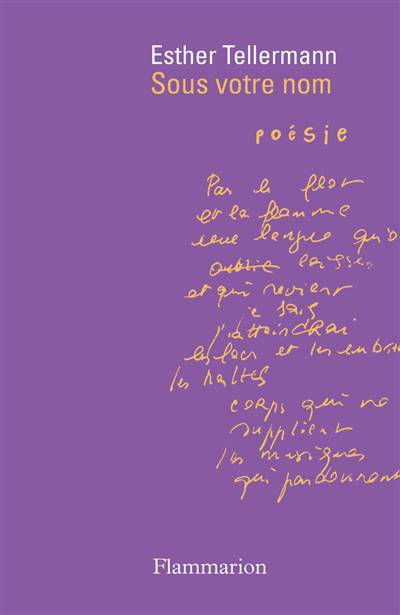 Esther Tellermann
Sous votre nom
poésie
Par le flot
et la flamme
une langue qu'o
oublie laisse
et qui revient
je sais
j'attoindrai
les lacs et les
les haltes
corps qui ne
supplient
les musiques
qui parcourent
Flammarion